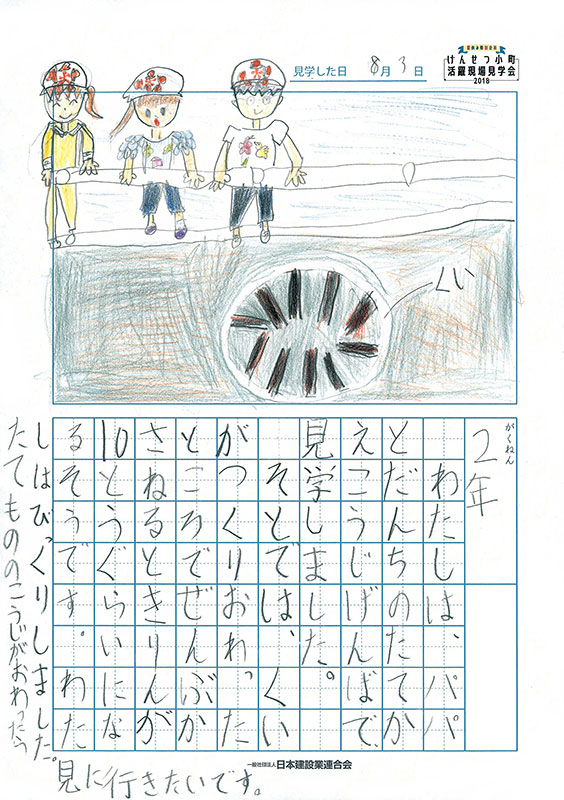 見学した日 8月3日
けんせつ小町
活躍現場見学会
2018
くい
がくねん
2年
わたしは、パパ
とだんちのたてか
えこうじげんばで、
見学しました。
そとでは、くい
がつくりおわった
ところでぜんぶか
さねるときりんが
10とうぐらいにな
るそうです。わた
しはびっくりしました。
たてもののこうじがおわったら
見に行きたいです。
一般社団法人 日本建設業連合会